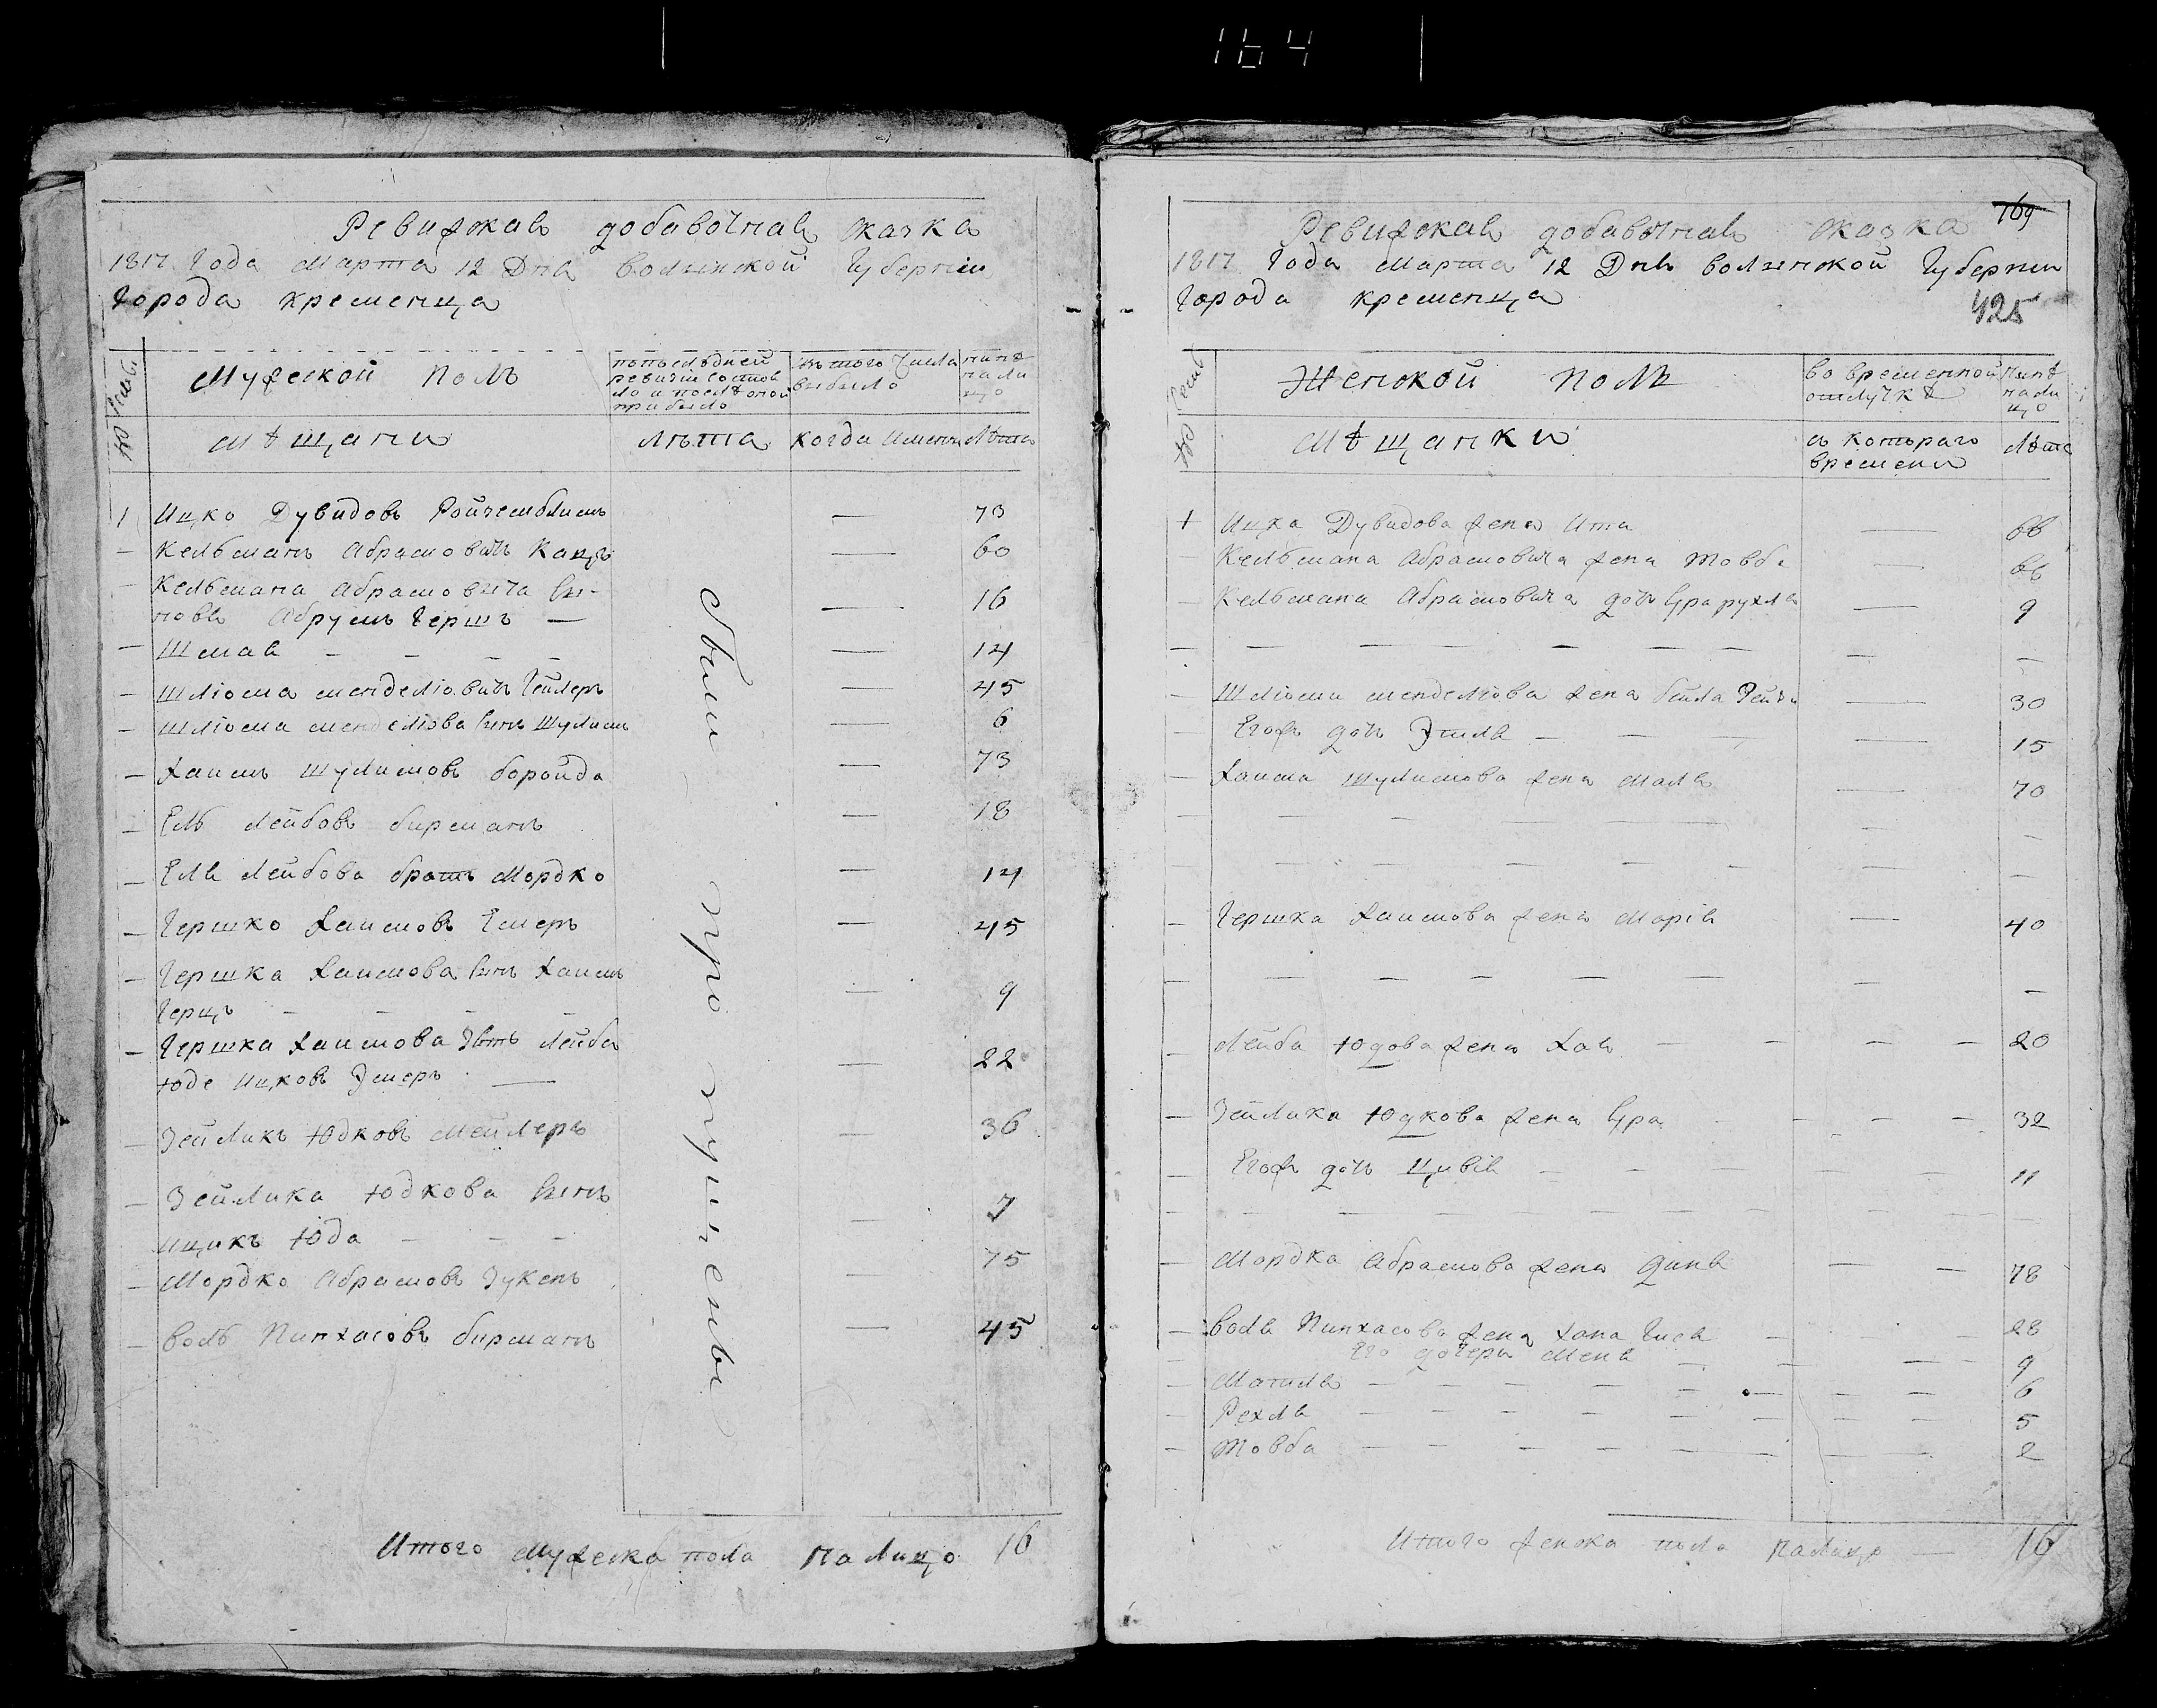 164
Ревижская добавочная скаска
1817 Года Марта 12 Дня волынской Губернии
Города кременца
Мужеской полъ
попоследней
ревизіи состоя
ло и после оной
прибыло
изъ того числа
выбыло
нынѣ
нали
цо
мѣщани
лѣта
когда имянно
лѣта
1 Ицко Дувидовъ 73
Кельманъ Абрамовичъ Кацъ 60
Кельмана Абрамовича сы-
новя Абрумъ Гершъ — 16
Шмая 14
Шліома менделіовичъ 45
Шліома менделіова сынъ Шулимъ 6
Хаимъ Шулимовъ боройда 73
Ель Лейбовъ бирманъ 18
Еля Лейбова братъ Мордко 14
Гершко Хаимовъ 45
Гершка Хаимова сынъ Хаимъ
Герцъ 9
Гершка Хаимова зять Лейба
Юде Ицковъ 22
Зейликъ Юдковъ Мейлеръ 36
Зейлика Юдкова сынъ
Ицикъ Юда 7
Мордко Абрамовъ Зукенъ 75
Воль Пинхасовъ бирманъ 45
были пропущены
Итого мужеска пола налицо 16
169
Ревижская добавочная скаска
1817 Года Марта 12 Дня волынской Губернии
Города кременца
425
Женской полъ
во временной
отлучкѣ
нынѣ
нали
цо
мѣщанки
съ котораго
времени
лѣта
1 Ицка Дувидова жена Ита 66
Кельмана Абрамовича жена Товба 66
Кельмана Абрамовича дочь Сура рухля 9
Шліоми менделіова жена бейла 30
Егожъ дочь Этля 15
Хаима Шулимова жена Маля 70
Гершка Хаимова жена Марія 40
Лейба Юдова жена Хая 20
Зейлика Юдкова жена Сура 32
Егожъ дочь Цивія 11
Мордка Абрамова жена Диня 78
Воля Пинхасова жена Хана Гися 28
Его дочери Меня 9
Матля 6
Рехля 5
Товба 2
Итого женска пола налицо 16